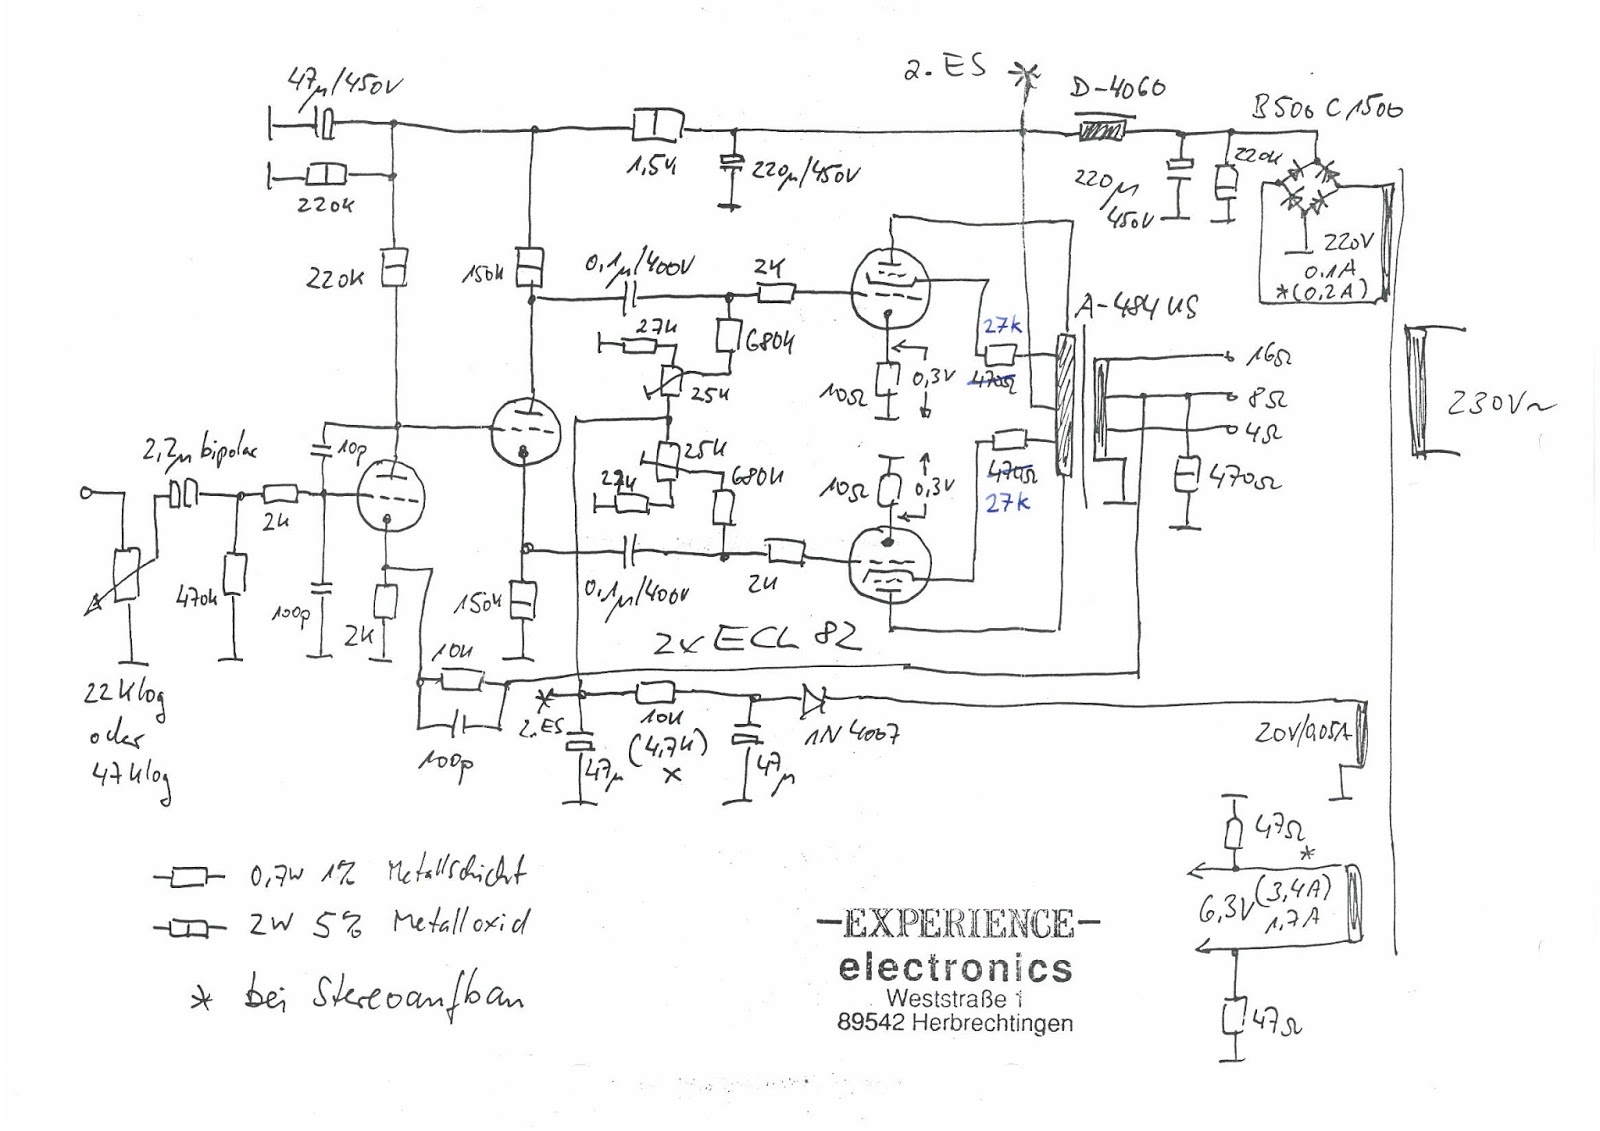 47µ/450V
220K
220K
150K
1,5K
220µ/450V
2.ES
D-4060
B500 C1500
220µ
450V
220K
220V
0.1A
*(0,2A)
0,1µ/400V
2K
27K
680K
25K
10Ω
0,3V
27k
470Ω
A-484 US
16Ω
8Ω
4Ω
470Ω
230V~
2,2µ bipolar
10p
2K
470K
100p
2K
25K
680K
10Ω
0,3V
470Ω
27k
150K
0.1µ/400V
2K
2x ECL 82
22Klog
oder
47Klog
10K
100p
2.ES
47µ
10K
(4,7K)
*
47µ
1N4007
20V/0,05A
47Ω
*
6,3V (3,4A)
1,7A
47Ω
0,7W 1% Metallschicht
2W 5% Metalloxid
* bei Stereoaufbau
-EXPERIENCE-
electronics
Weststraße 1
89542 Herbrechtingen